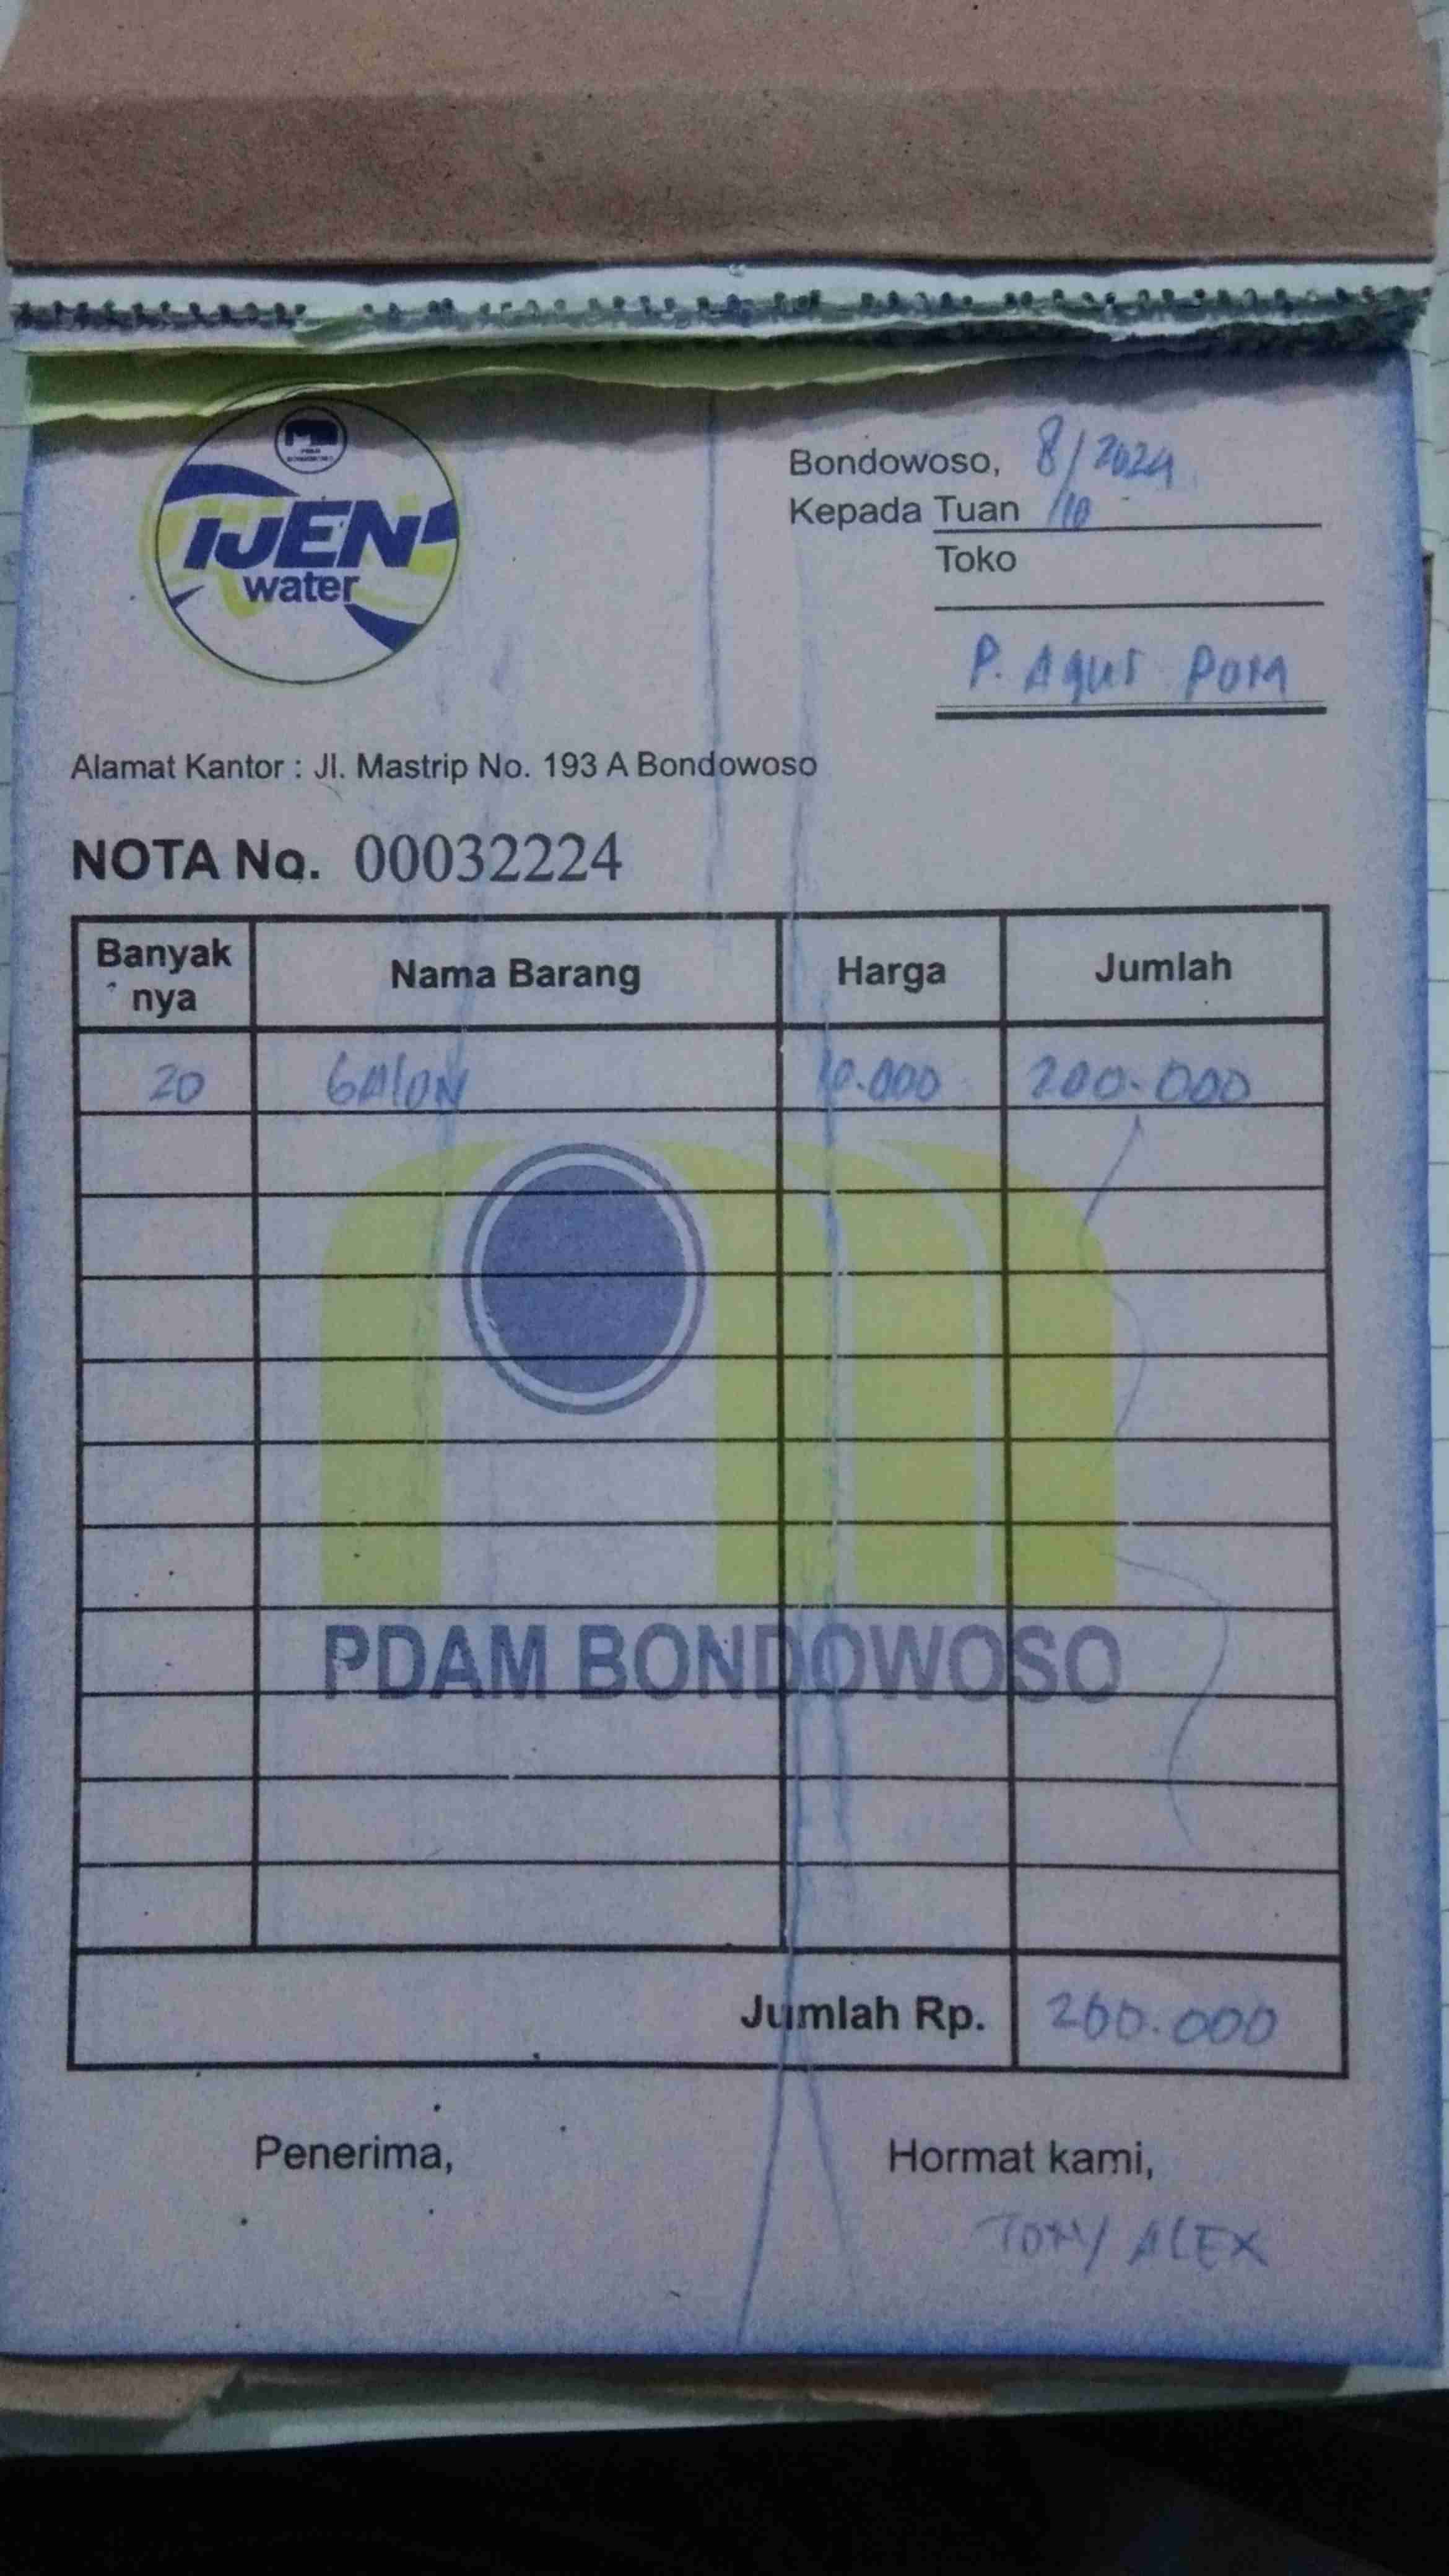 IJEN
water
Bondowoso, 8/10 2024
Kepada Tuan
Toko
P. Agus
Alamat Kantor : Jl. Mastrip No. 193 A Bondowoso
NOTA No. 00032224
Banyak nya Nama Barang Harga Jumlah
20 GAlON 10.000 200.000
PDAM BONDOWOSO
Jumlah Rp. 200.000
Penerima, Hormat kami,
TONY ALEX